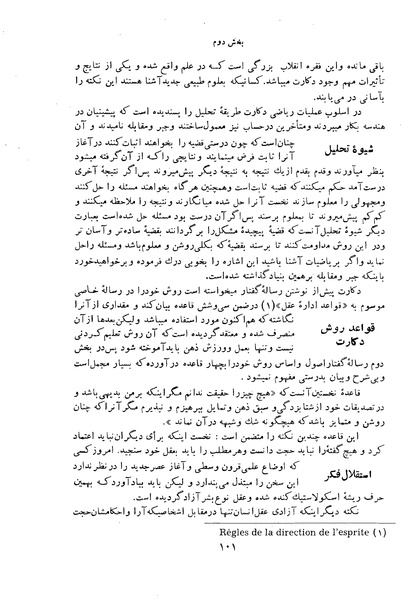 بخش دوم
باقی مانده و این فقره انقلاب بزرگی است که در علم واقع شده و یکی از نتایج و
تأثیرات مهم وجود دکارت میباشد. کسانیکه بعلوم طبیعی جدید آشنا هستند این نکته را
بآسانی در می‌یابند.
در اسلوب عملیات ریاضی دکارت طریقهٔ تحلیل را پسندیده است که پیشینیان در
هندسه بکار میبردند و متأخرین در حساب نیز معمول ساختند و جبر و مقابله نامیدند و آن
شیوهٔ تحلیل
چنان است که چون درستی قضیه را بخواهند اثبات کنند در آغاز
آنرا ثابت فرض مینمایند و نتایجی را که از آن گرفته میشود
بنظر میآورند و قدم بقدم از یک نتیجه به نتیجهٔ دیگر پیش میروند پس اگر نتیجهٔ آخری
درست آمد حکم میکنند که قضیه ثابت است و همچنین هرگاه بخواهند مسئله را حل کنند
و مجهولی را معلوم سازند نخست آنرا حل شده میانگارند و نتیجه را ملاحظه میکنند و
کم کم پیش میروند تا بمعلوم برسند پس اگر آن درست بود مسئله حل شده است بعبارت
دیگر شیوهٔ تحلیل آنست که قضیهٔ پیچیدهٔ مشکل را بر گردانند بقضیهٔ ساده‌تر و آسان تر
و در این روش مداومت کنند تا برسند بقضیهٔ که بکلی روشن و معلوم باشد و مسئله را حل
نماید و اگر بریاضیات آشنا باشید این اشاره را بخوبی درک فرموده و برخواهید خورد
باینکه جبر و مقابله بر همین بنیاد گذاشته شده است.
دکارت پیش از نوشتن رسالهٔ گفتار میخواسته است روش خود را در رسالهٔ خاصی
موسوم به «قواعد ادارهٔ عقل»(۱) در ضمن سی و شش قاعده بیان کند و مقداری از آنرا
قواعد روش
دکارت
نگاشته که هم اکنون مورد استفاده میباشد ولیکن بعدها از آن
منصرف شده و معتقد گردیده است که آن روش تعلیم کردنی
نیست و تنها بعمل و ورزش ذهن باید آموخته شود پس در بخش
دوم رسالهٔ گفتار اصول و اساس روش خود را بچهار قاعده در آورده که بسیار مجمل است
و بی شرح و بیان بدرستی مفهوم نمیشود.
قاعدهٔ نخستین آنست که «هیچ چیز را حقیقت ندانم مگر اینکه بر من بدیهی باشد و
در تصدیقات خود از شتابزدگی و سبق ذهن و تمایل بپرهیزم و نپذیرم مگر آنرا که چنان
روشن و متمایز باشد که هیچگونه شک و شبهه در آن نماند»
این قاعده چندین نکته را متضمن است: نخست اینکه برای دیگران نباید اعتماد
کرد و هیچ گفته‌را نباید حجت دانست و هر مطلب را باید بعقل خود سنجید. امروز کسی
استقلال فکر
که اوضاع علمی قرون وسطی و آغاز عصر جدید را در نظر ندارد
این سخن را مبتذل می‌پندارد و لیکن باید بیاد آورد که بهمین
حرف ریشهٔ اسکولاستیک کنده شده و عقل نوع بشر آزاد گردیده است.
نکته دیگر اینکه آزادی عقل انسان تنها در مقابل اشخاصیکه آراء و احکامشان حجت
Régles de la direction de l'esprite (۱)
۱۰۱